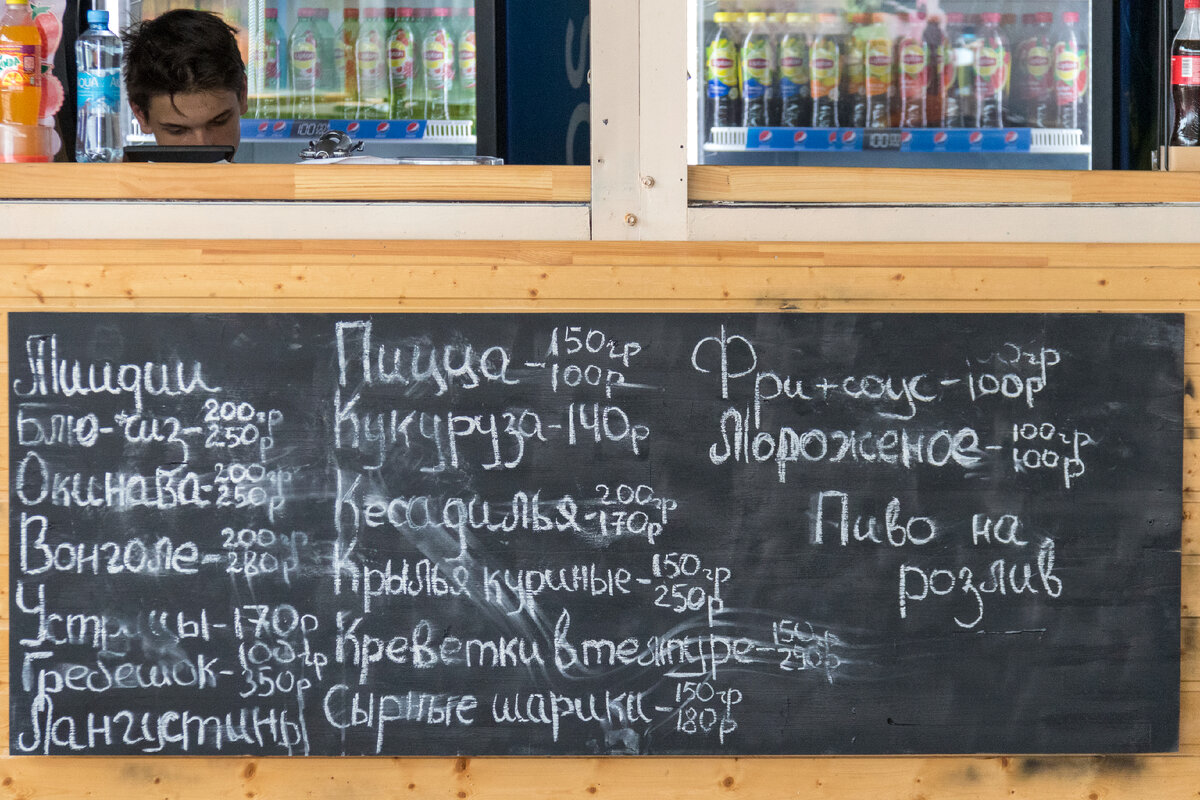 Мидии
Блю-чиз - 200гр 250р
Окинава - 200гр 250р
Вонголе - 200гр 280р
Устрицы - 170р
Гребешок - 100гр 350р
Лангустины
Пицца - 150гр 100р
Кукуруза - 140р
Кесадилья - 200гр 170р
Крылья куриные - 150гр 250р
Креветки в темпуре - 150гр
Сырные шарики - 150гр 180р
Фри + соус - гр 100р
Мороженое - 100гр 100р
Пиво на
розлив